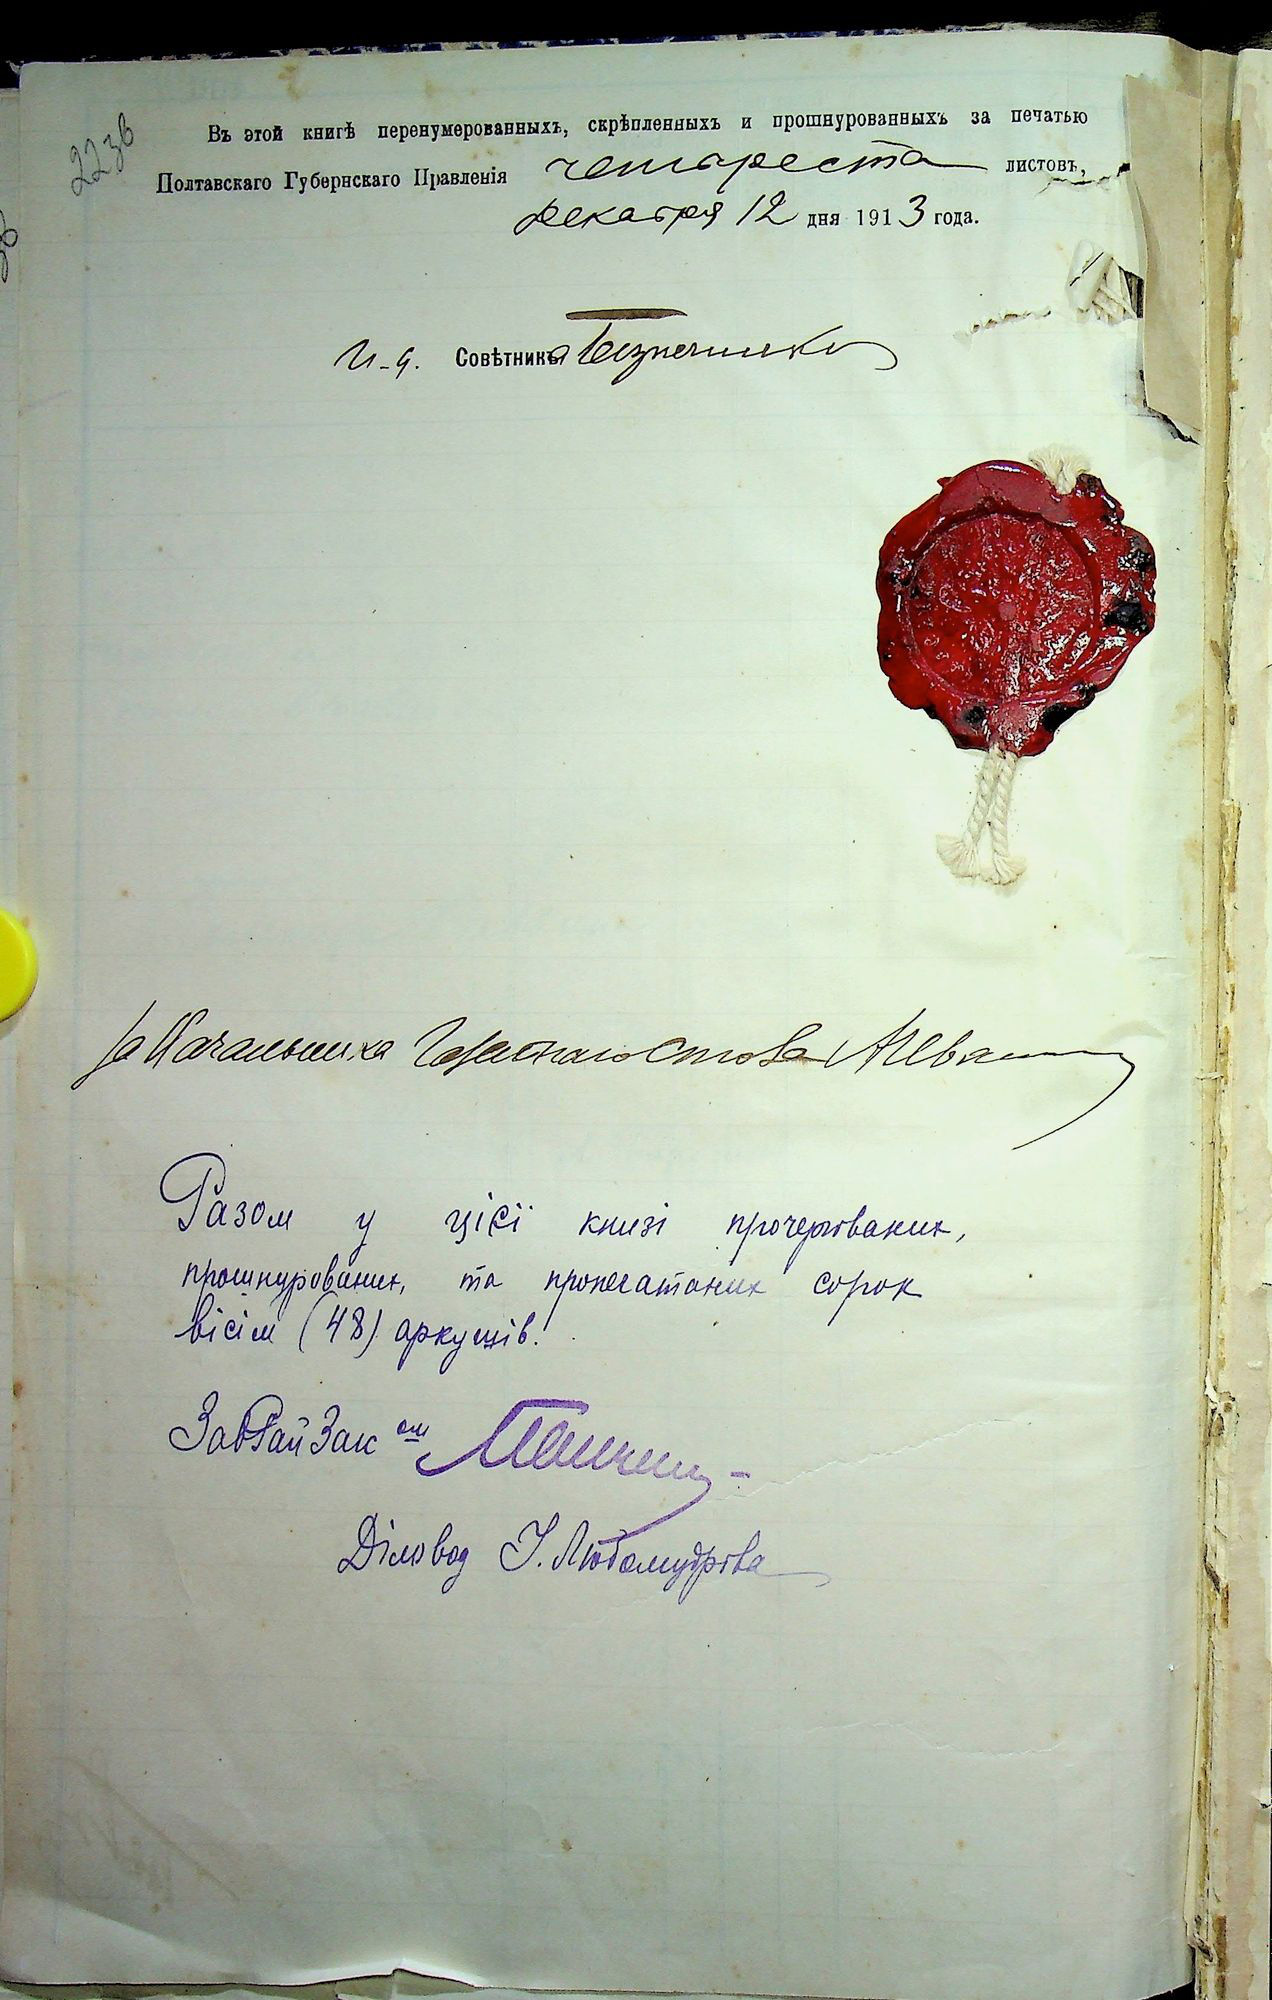 223в
Въ этой книгѣ перенумерованныхъ, скрѣпленныхъ и прошнурованныхъ за печатью
Полтавскаго Губернскаго Правленія четыреста листовъ,
декабря 12 дня 1913 года.
И. д. Совѣтника
За Начальника Газетнаго Стола
Разом у цієї книзі прочергованих,
прошнурованих, та пропечатаних сорок
вісім (48) аркушів.
ЗавРайЗаг ом
Діловод І. Любомудрова